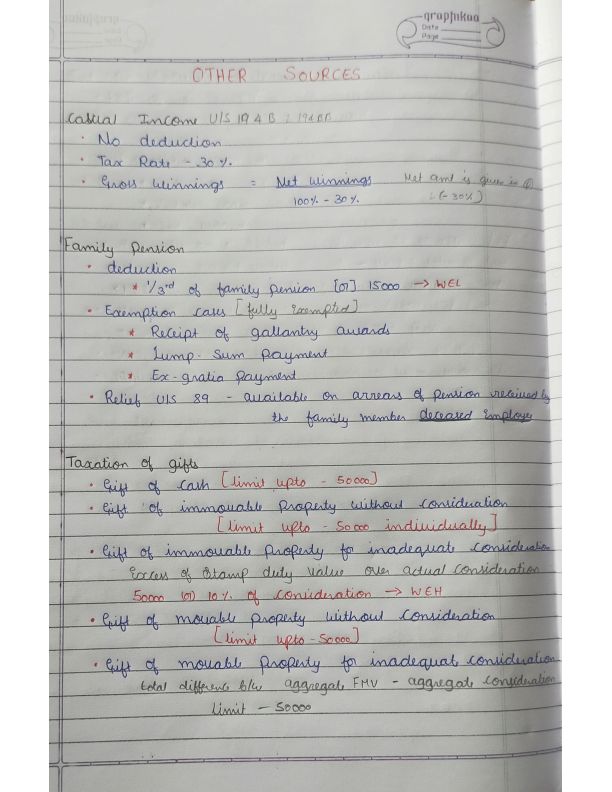 graphikaa
Date
Page
OTHER SOURCES
Casual Income U/S 194 B : 194 BB
• No deduction
• Tax Rate - 30 %.
• Gross winnings = Net winnings Net amt is given in Q
100% - 30 % : (- 30%)
Family Pension
• deduction
* 1/3rd of family pension [or] 15000 → WEL
• Exemption cases [fully exempted]
* Receipt of gallantry awards
* Lump-Sum Payment
* Ex-gratia Payment
• Relief U/S 89 - available on arrears of pension received by
the family member deceased employee
Taxation of gifts
• Gift of cash [limit upto - 50000]
• Gift of immovable Property without consideration
[limit upto - 50000 individually]
• Gift of immovable Property for inadequate consideration
Excess of Stamp duty value over actual consideration
50000 (or) 10% of consideration → WEH
• Gift of movable Property without Consideration
[limit upto - 50000]
• Gift of movable Property for inadequate consideration
total difference b/w aggregate FMV - aggregate consideration
limit - 50000